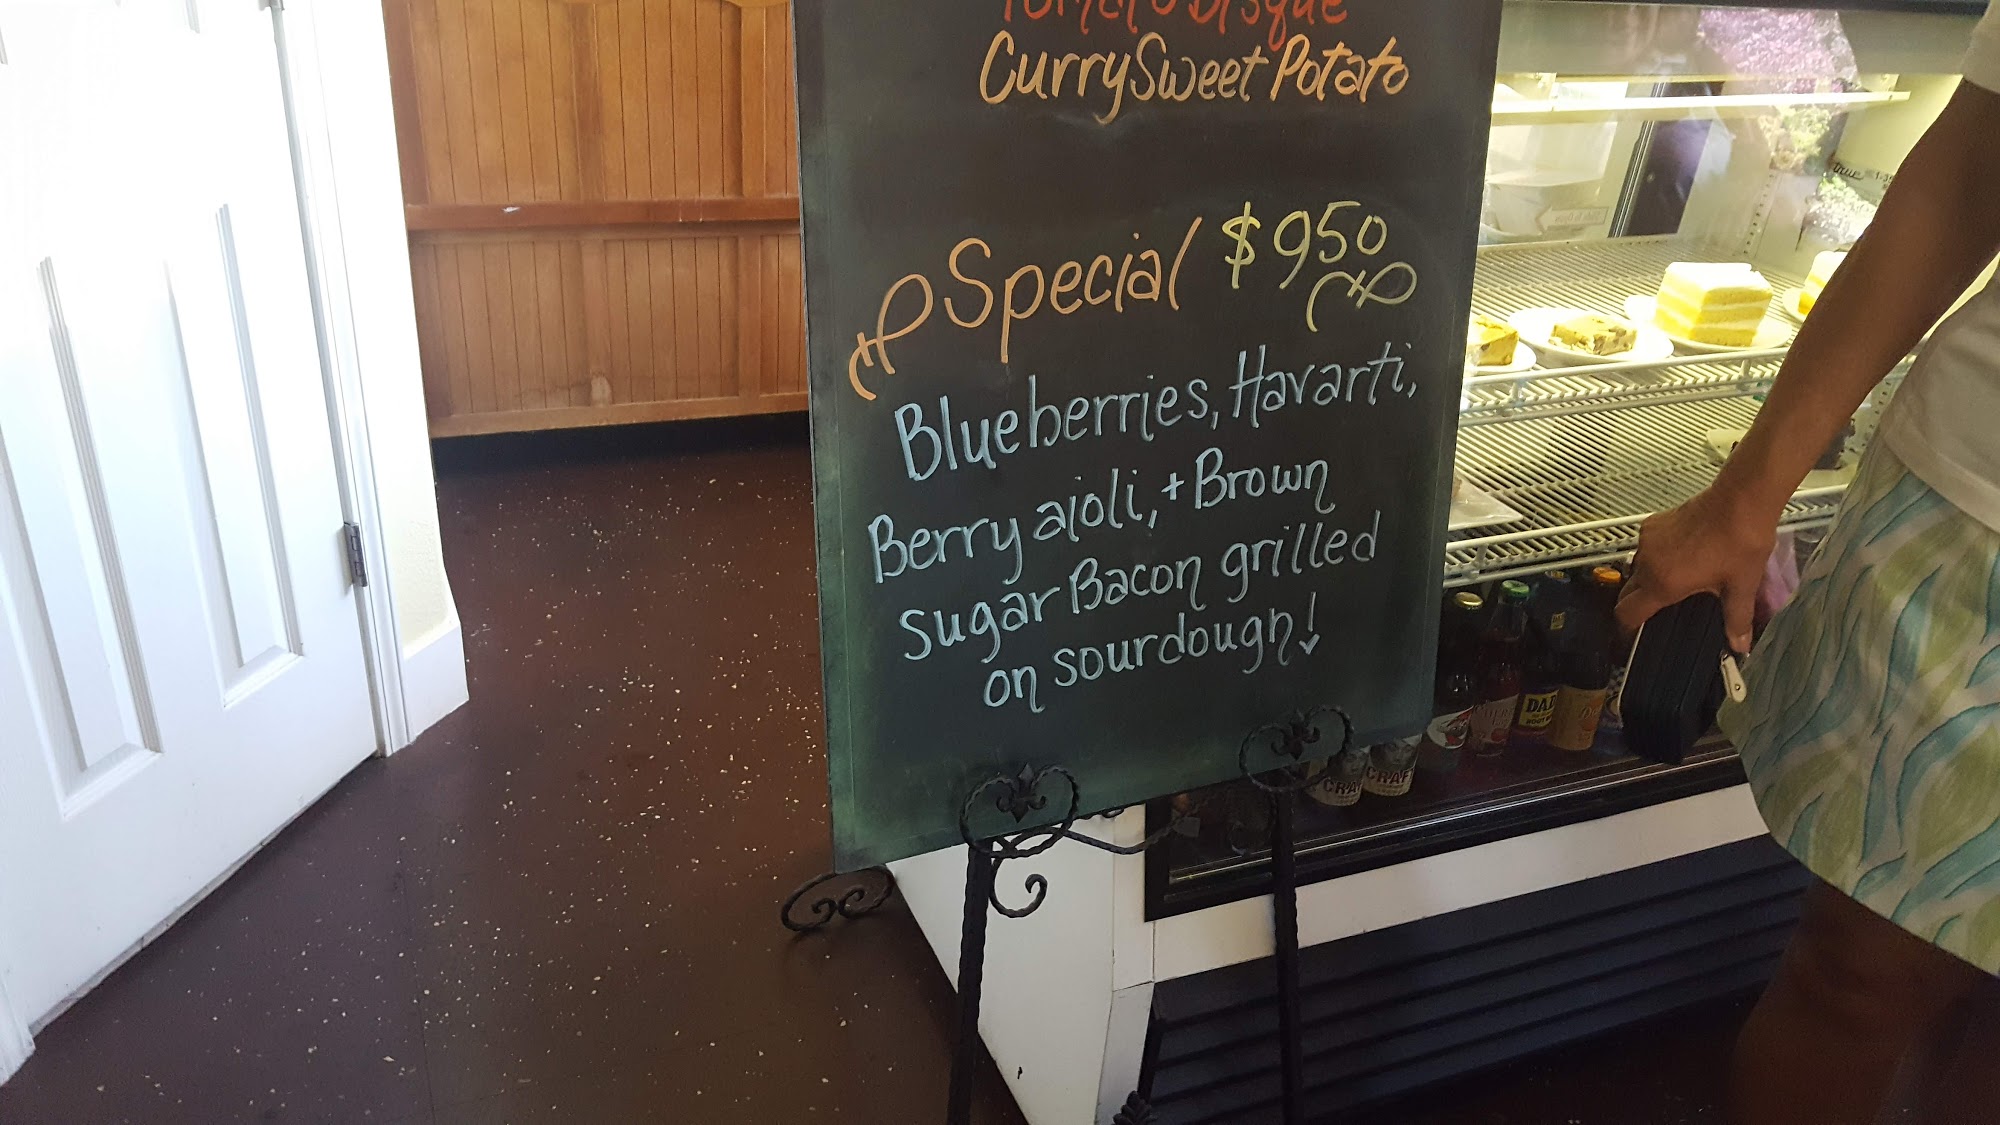 Tomato Bisque
Curry Sweet Potato
Special $950
Blueberries, Havarti,
Berry aioli, + Brown
sugar Bacon grilled
on sourdough!
DAD
ROOT
CRAF
CRAF